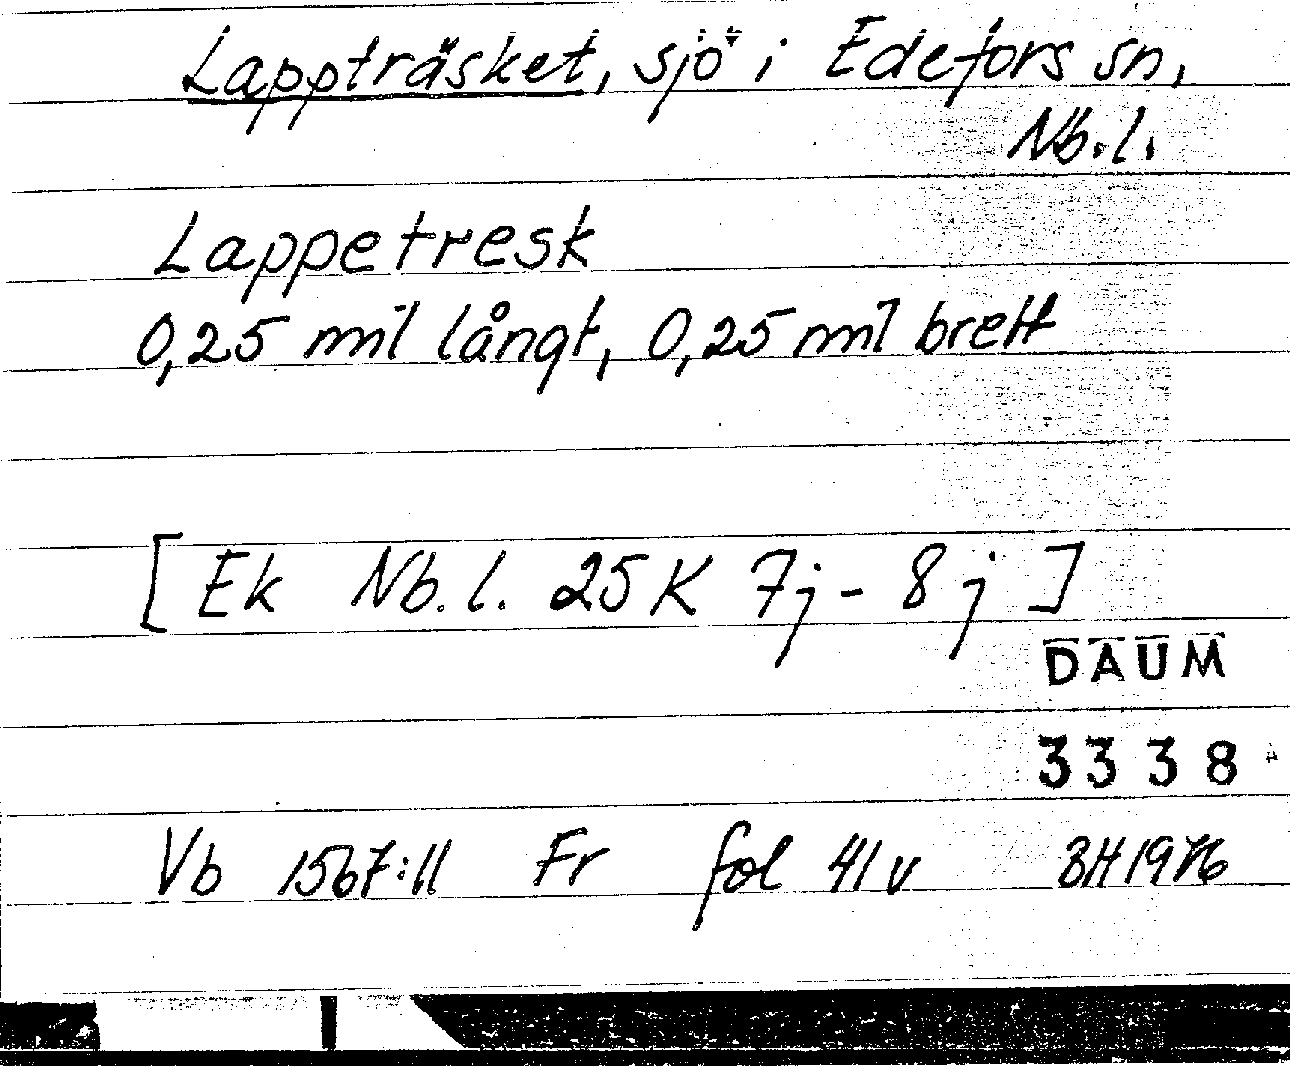 Lappträsket, sjö i Edefors sn,
Nb.l.
Lappetresk
0,25 mil långt, 0,25 mil brett
[Ek Nb.l. 25K 7j - 8j]
DAUM
3338
Vb 1567:11 Fr fol 41v BH 1976